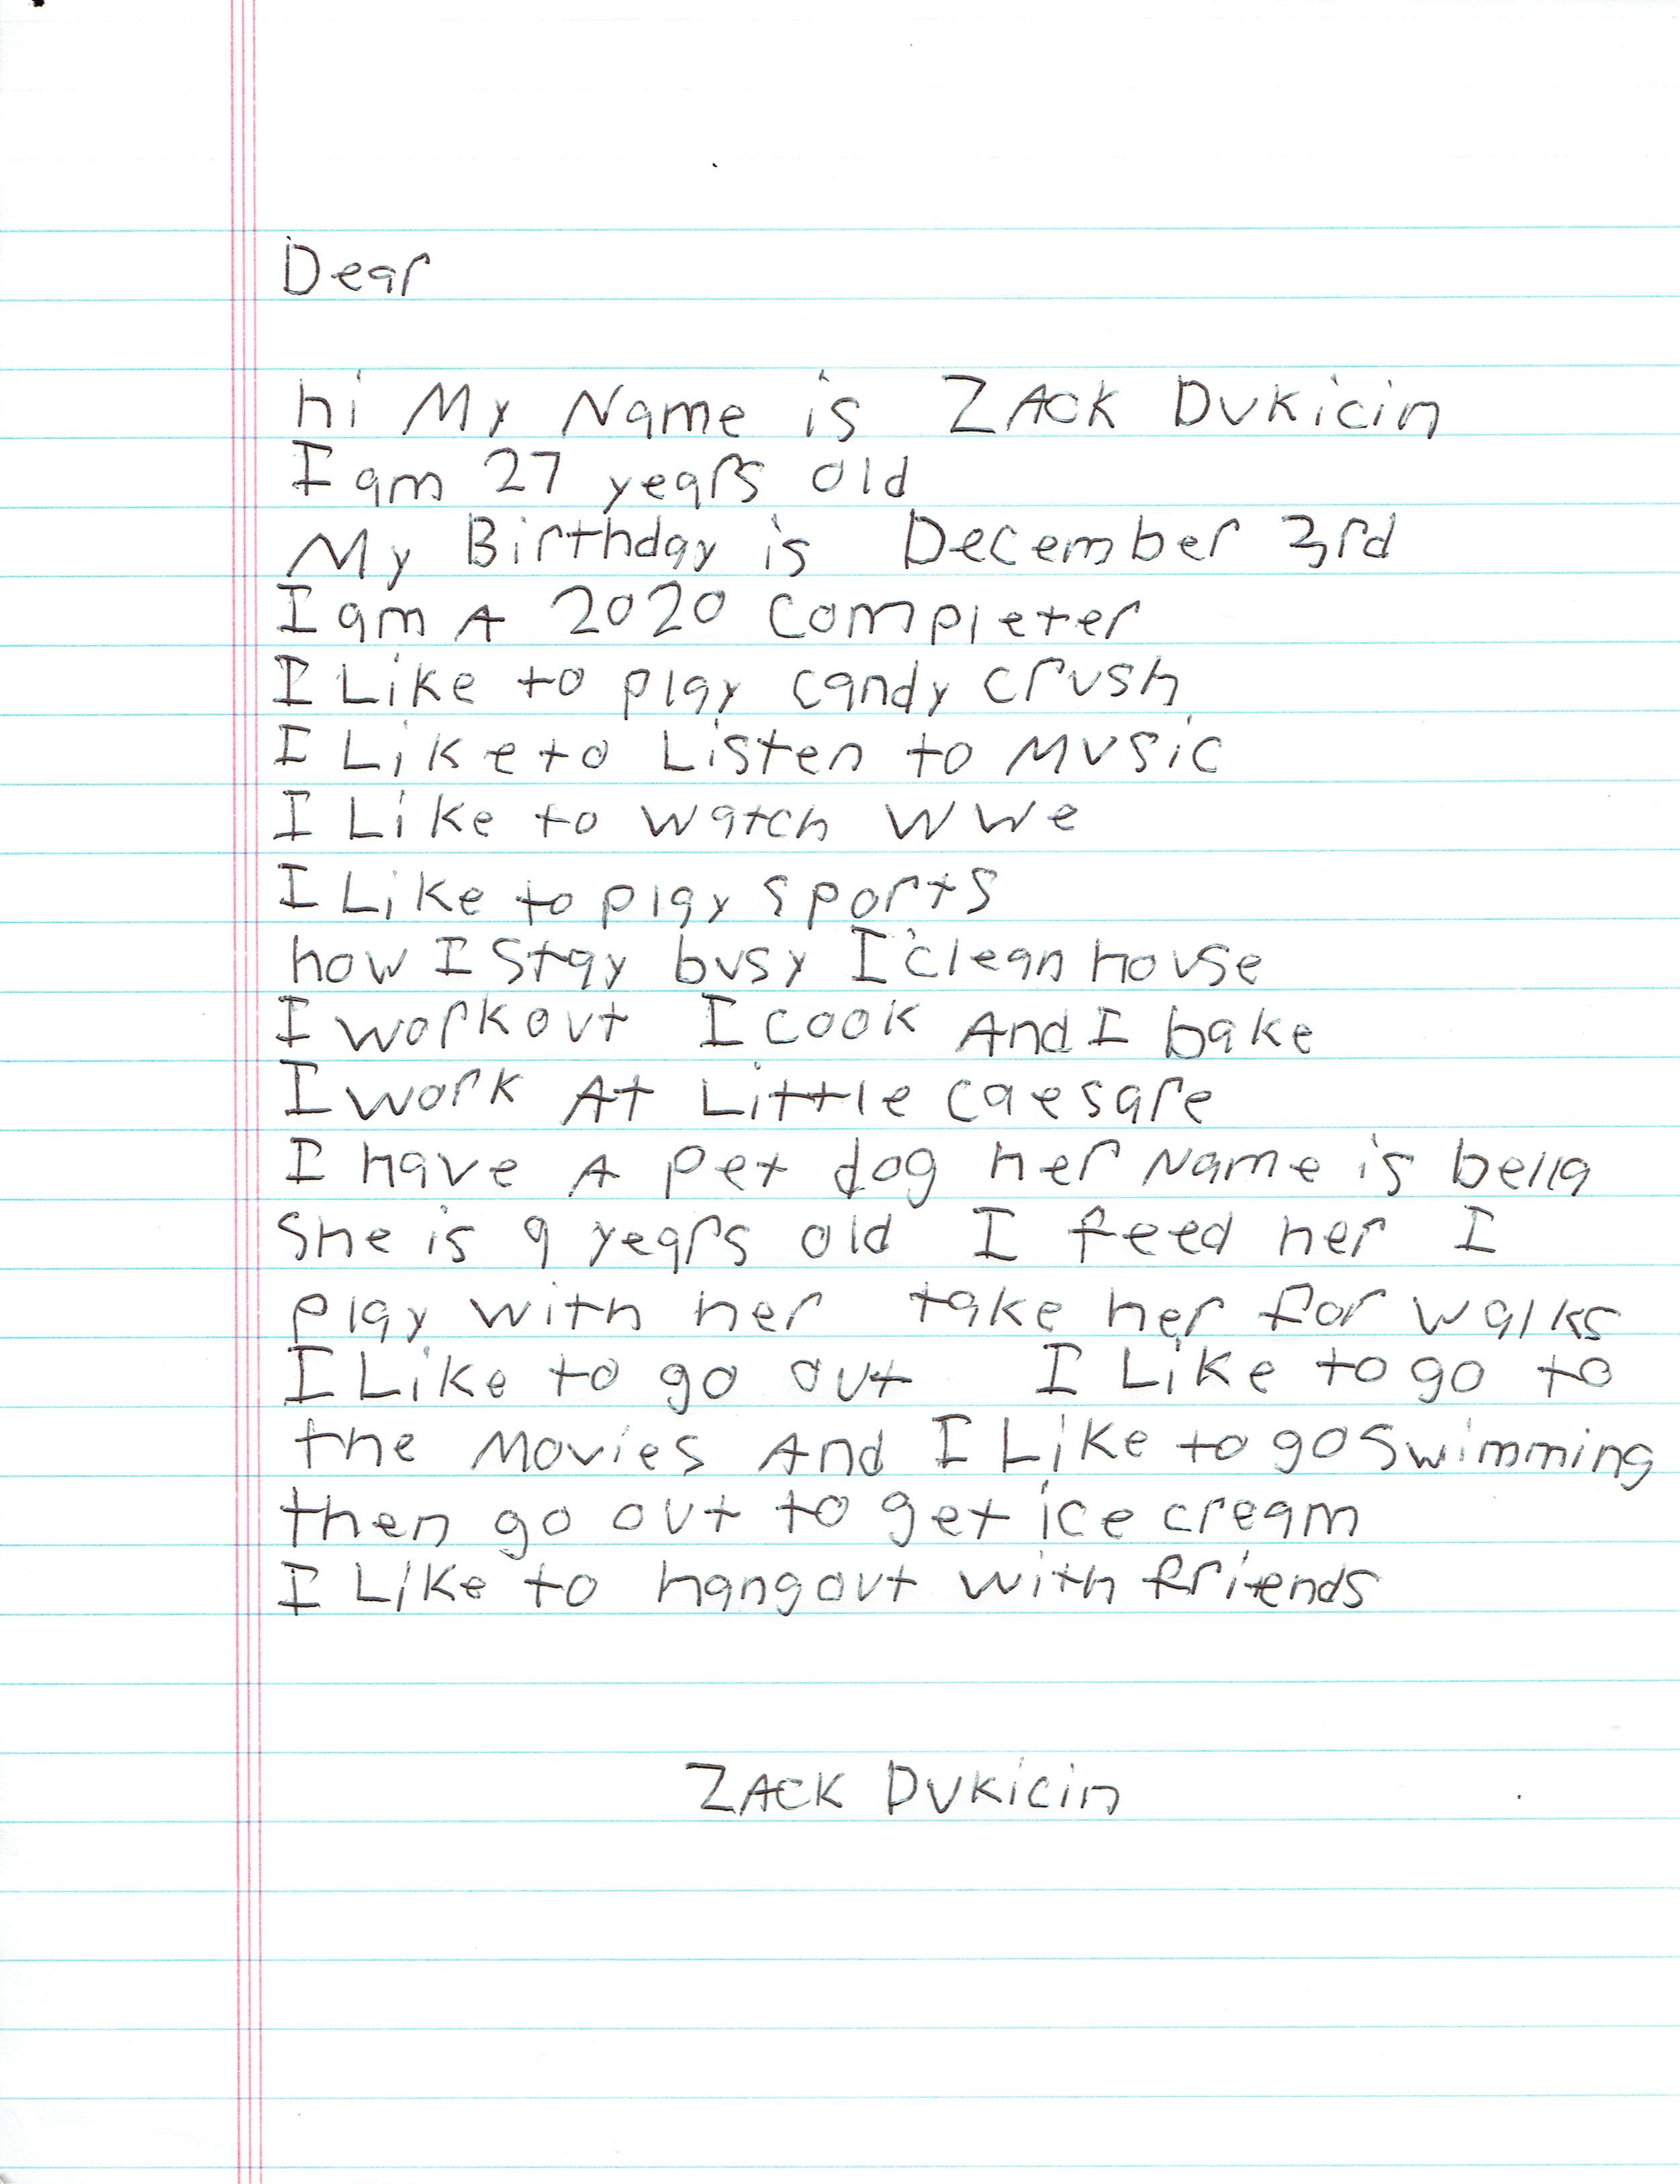 Dear
hi My Name is ZACK DUKicin
I am 27 years old
My Birthday is December 3rd
I am A 2020 Completer
I Like to play candy crush
I Like to Listen to Music
I Like to watch WWe
I Like to play sports
how I stay busy I clean house
I workout I cook And I bake
I work At Little caesare
I have A pet dog her Name is bella
She is 9 years old I feed her I
play with her take her for walks
I Like to go out I Like to go to
the Movies And I Like to go swimming
then go out to get ice cream
I Like to hangout with friends
ZACK DUKicin